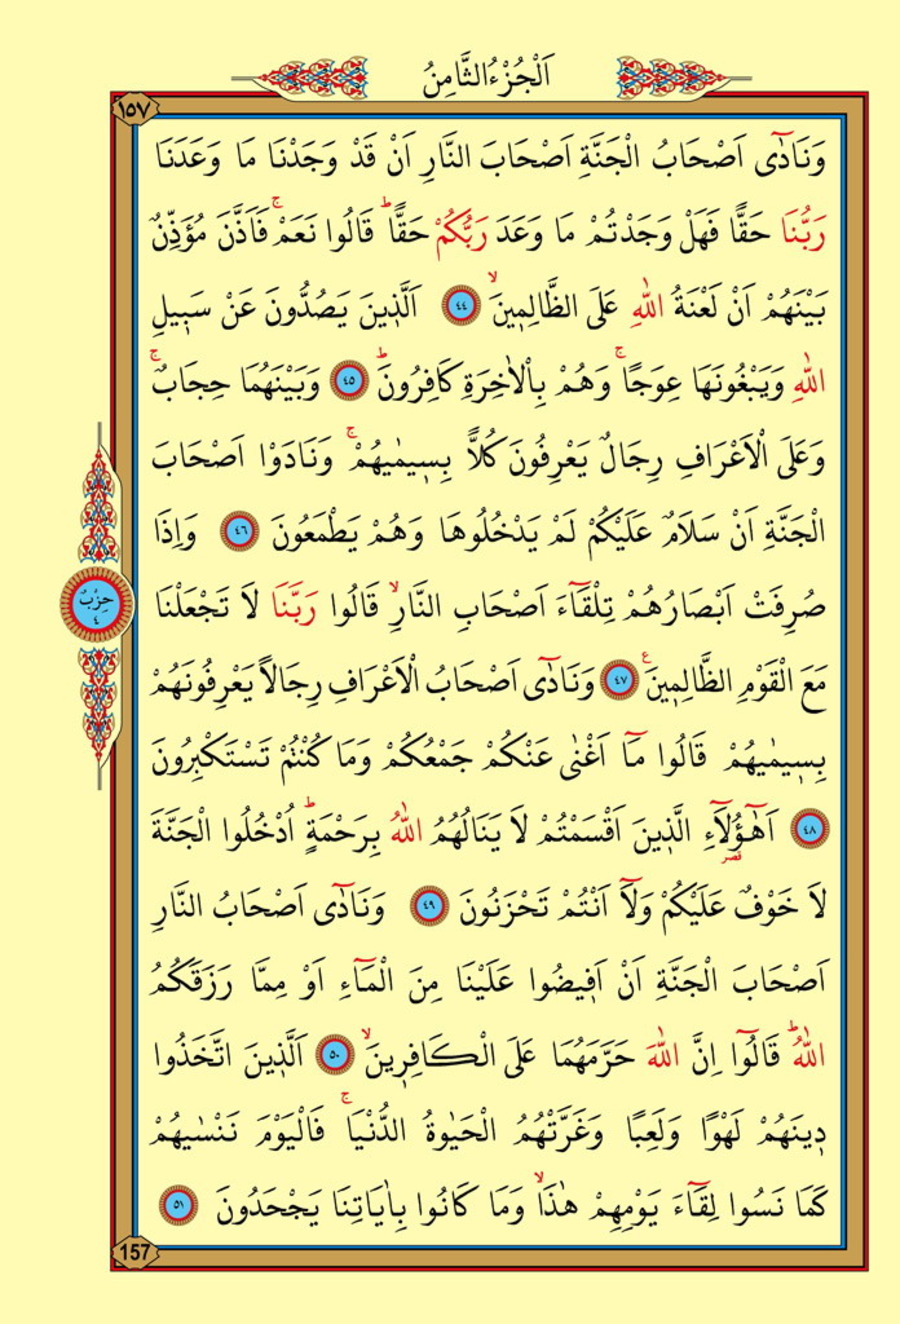 اَلْجُزْءُ الثَّامِنُ
١٥٧
وَنَادٰٓى اَصْحَابُ الْجَنَّةِ اَصْحَابَ النَّارِ اَنْ قَدْ وَجَدْنَا مَا وَعَدَنَا
رَبُّنَا حَقًّا فَهَلْ وَجَدْتُمْ مَا وَعَدَ رَبُّكُمْ حَقًّاۜ قَالُوا نَعَمْۚ فَاَذَّنَ مُؤَذِّنٌ
بَيْنَهُمْ اَنْ لَعْنَةُ اللّٰهِ عَلَى الظَّالِمٖينَۙ ﴿٤٤﴾ اَلَّذٖينَ يَصُدُّونَ عَنْ سَبٖيلِ
اللّٰهِ وَيَبْغُونَهَا عِوَجًاۚ وَهُمْ بِالْاٰخِرَةِ كَافِرُونَۜ ﴿٤٥﴾ وَبَيْنَهُمَا حِجَابٌۚ
وَعَلَى الْاَعْرَافِ رِجَالٌ يَعْرِفُونَ كُلًّا بِسٖيمٰيهُمْۚ وَنَادَوْا اَصْحَابَ
الْجَنَّةِ اَنْ سَلَامٌ عَلَيْكُمْ لَمْ يَدْخُلُوهَا وَهُمْ يَطْمَعُونَ ﴿٤٦﴾ وَاِذَا
صُرِفَتْ اَبْصَارُهُمْ تِلْقَٓاءَ اَصْحَابِ النَّارِۙ قَالُوا رَبَّنَا لَا تَجْعَلْنَا
مَعَ الْقَوْمِ الظَّالِمٖينَࣖ ﴿٤٧﴾ وَنَادٰٓى اَصْحَابُ الْاَعْرَافِ رِجَالًا يَعْرِفُونَهُمْ
بِسٖيمٰيهُمْ قَالُوا مَٓا اَغْنٰى عَنْكُمْ جَمْعُكُمْ وَمَا كُنْتُمْ تَسْتَكْبِرُونَ
﴿٤٨﴾ اَهٰٓؤُ۬لَٓاءِ الَّذٖينَ اَقْسَمْتُمْ لَا يَنَالُهُمُ اللّٰهُ بِرَحْمَةٍۜ اُدْخُلُوا الْجَنَّةَ
قصر
لَا خَوْفٌ عَلَيْكُمْ وَلَٓا اَنْتُمْ تَحْزَنُونَ ﴿٤٩﴾ وَنَادٰٓى اَصْحَابُ النَّارِ
اَصْحَابَ الْجَنَّةِ اَنْ اَفٖيضُوا عَلَيْنَا مِنَ الْمَٓاءِ اَوْ مِمَّا رَزَقَكُمُ
اللّٰهُۜ قَالُٓوا اِنَّ اللّٰهَ حَرَّمَهُمَا عَلَى الْكَافِرٖينَۙ ﴿٥٠﴾ اَلَّذٖينَ اتَّخَذُوا
دٖينَهُمْ لَهْوًا وَلَعِبًا وَغَرَّتْهُمُ الْحَيٰوةُ الدُّنْيَاۚ فَالْيَوْمَ نَنْسٰيهُمْ
كَمَا نَسُوا لِقَٓاءَ يَوْمِهِمْ هٰذَاۙ وَمَا كَانُوا بِاٰيَاتِنَا يَجْحَدُونَ ﴿٥١﴾
حِزْبٌ
٤
157